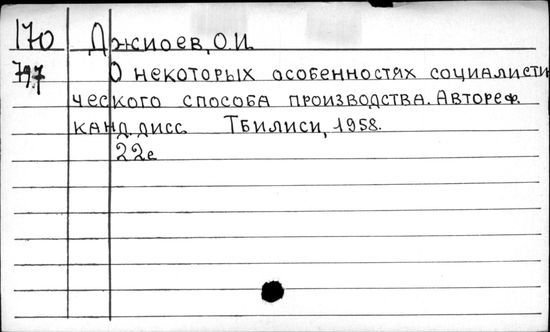 170 Джиоев, О.И.
79.7 О некоторых особенностях социалисти
ческого способа производства. Автореф.
канд. дисс. Тбилиси, 1958.
22с